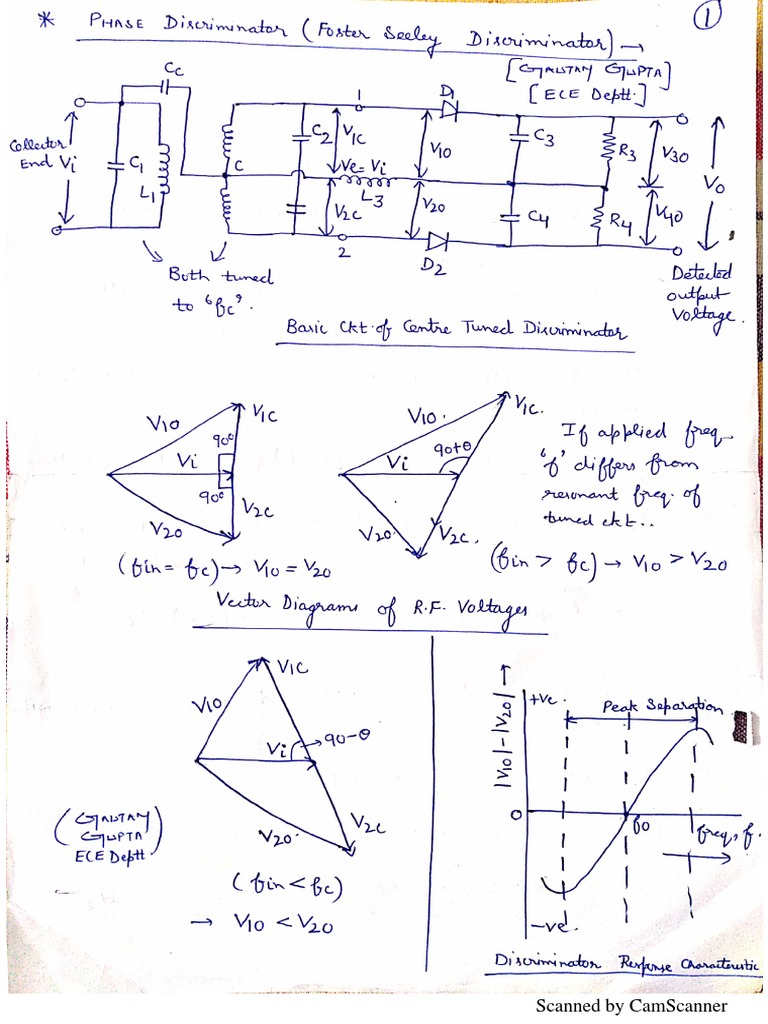 1
* PHASE Discriminator (Foster Seeley Discriminator) →
[GAUTAM GUPTA]
[ECE Deptt.]
Cc
1
D1
Collector
End Vi
C1
L1
C
C2
V1C
Ve=Vi
L3
V2C
V10
V20
C3
C4
R3
R4
V30
V40
Vo
2
D2
Both tuned
to 'fc'.
Detected
output
Voltage.
Basic Ckt. of Centre Tuned Discriminator
V10
V1C
90°
Vi
90°
V2C
V20
(fin = fc) → V10 = V20
V10.
V1C.
90+θ
Vi
V20.
V2C.
If applied freq
'f' differs from
resonant freq. of
tuned ckt..
(fin > fc) → V10 > V20
Vector Diagrams of R.F. Voltages
V1C
V10
Vi
90-θ
V20.
V2C
(GAUTAM
GUPTA)
ECE Deptt.
(fin < fc)
→ V10 < V20
|V10|-|V20| →
+ve.
Peak Separation
0
fo
freq, f.
-ve.
Discriminator Response Characteristic
Scanned by CamScanner